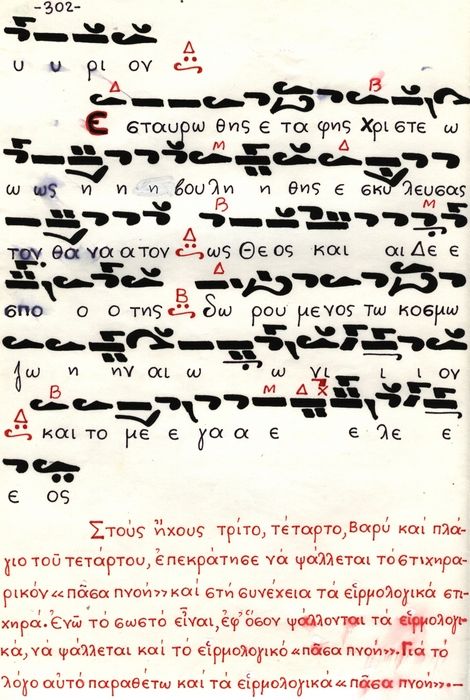 -302-
υ υ ρι ον Δ
Δ Β
Ε σταυρω θης ε τα φης Χρι στε ω
Μ Δ
ω ως η η η βου λη η θης ε σκυ λευσας
Β Μ
τον θα να α τον Δ ως Θε ος και αι Δε ε
Δ
σπο ο ο της Β δω ρου με νος τω κοσμω
ζω η ην αι ω ω νι ι ι ον
Β Μ Δ χ
Δ και το με ε γα α ε ε λε ε
ε ος
Στούς ἤχους τρίτο, τέταρτο, Βαρύ καί πλά-
γιο τοῦ τετάρτου, ἐπεκράτησε νά ψάλλεται τό στιχηρα-
ρικόν «πᾶσα πνοή» καί στή συνέχεια τά εἱρμολογικά στι-
χηρά. Ἐνῶ τό σωστό εἶναι, ἐφ' ὅσον ψάλλονται τά εἱρμολογι-
κά, νά ψάλλεται καί τό εἱρμολογικό «πᾶσα πνοή». Γιά τό
λόγο αὐτό παραθέτω καί τά εἱρμολογικά «πᾶσα πνοή».-